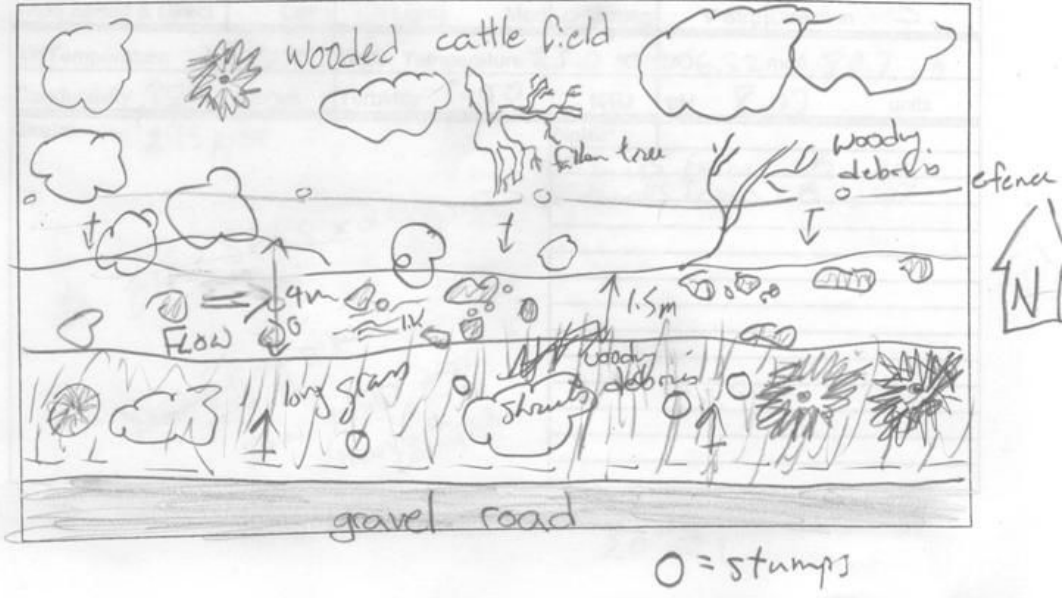 wooded cattle field
fallen tree
woody
debris
fence
N
4m
1.5m
FLOW
woody
debris
long grass
shrubs
gravel road
O = stumps